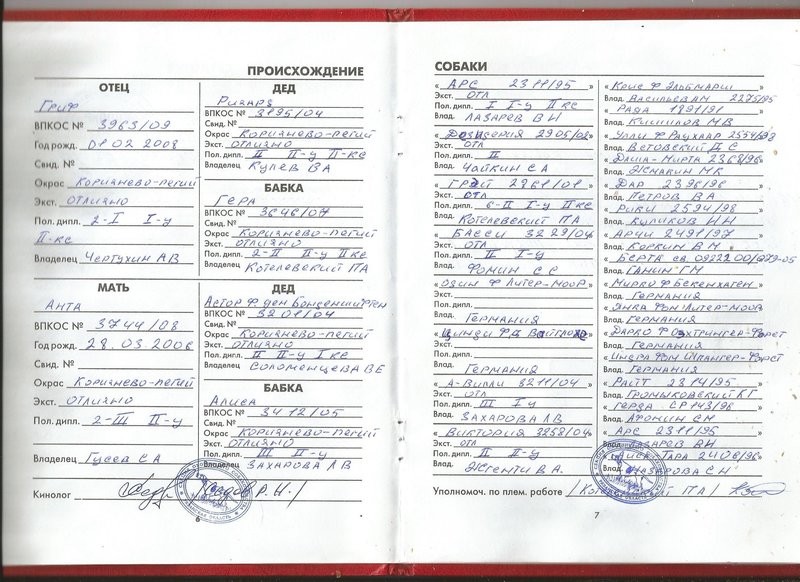 ПРОИСХОЖДЕНИЕ
ОТЕЦ
Гриф
ВПКОС № 3963/09
Год рожд. 01 02 2008
Свид. №
Окрас Коричнево-пегий
Экст. ОТЛИЧНО
Пол. дипл. 2-I I-у
II-кс
Владелец Чертухин АВ
МАТЬ
Анта
ВПКОС № 3744/08
Год рожд. 28.03.2006
Свид. №
Окрас Коричнево-пегий
Экст. ОТЛИЧНО
Пол. дипл. 2-III II-у
Владелец Гусев СА
Кинолог
6
ДЕД
Ричард
ВПКОС № 3195/04
Свид. №
Окрас Коричнево-пегий
Экст. ОТЛИЧНО
Пол. дипл. II II-у II-кс
Владелец Кулев ВА
БАБКА
Гера
ВПКОС № 3646/07
Свид. №
Окрас Коричнево-пегий
Экст. ОТЛИЧНО
Пол. дипл. 2-II II-у II кс
Владелец Котелевский ПА
ДЕД
Астор Ф ден
ВПКОС № 3201/04
Свид. №
Окрас Коричнево-пегий
Экст. ОТЛИЧНО
Пол. дипл. II II-у I кс
Владелец Соломенцева ВЕ
БАБКА
Алиса
ВПКОС № 3412/05
Свид. №
Окрас Коричнево-пегий
Экст. ОТЛИЧНО
Пол. дипл. III II-у
Владелец ЗАХАРОВА ЛВ
СОБАКИ
« АРС 2311/95 »
Экст. ОТЛ
Пол. дипл. I I-у II кс
Влад. ЛАЗАРЕВ ВН
2905/02»
Экст. ОТЛ
Пол. дипл. II
Влад. Чайкин СА
« ГРЭЙ 2861/01 »
Экст. ОТЛ
Пол. дипл. 6-II I-у II кс
Влад. Котелевский ПА
« БАССИ 3229/04 »
Экст. ОТЛ
Пол. дипл. II I-у
Влад. Фомин СС
« Один Ф Литер-Моор »
Экст.
Пол. дипл.
Влад. Германия
« Цинди »
Экст.
Пол. дипл.
Влад. Германия
« А-Вилли 3211/04 »
Экст. ОТЛ
Пол. дипл. III I-у
Влад. ЗАХАРОВА ЛВ
« ВИКТОРИЯ 3258/04 »
Экст. ОТЛ
Пол. дипл. II II-у
Влад. Жгенти В А.
« Крис Ф Эльбмарш »
Влад. Васильев АМ 2275/95
« Рада 1891/91 »
Влад. МВ
« Улли Ф 2554/98
Влад. Ветовский ДС
« Даша-Мирта 2368/96 »
Влад. Жмакин МК
« ДАР 2396/96 »
Влад. ПЕТРОВ ВА
« РИКИ 2594/98 »
Влад. Куликов НН
« АРЧИ 2491/97 »
Влад. Коркин ВМ
« БЕРТА св.
Влад. Ганин ГМ
« Мирко Ф Бекенхаген »
Влад. Германия
« Янка Фом Литер-Моор »
Влад. Германия
« Дарко Ф
Влад. Германия
« Индра Фом
Влад. Германия
« РАЙТ 2314/95 »
Влад. Громыковский КГ
« Герда СР 143/96 »
Влад. Афонин СМ
« АРС 2311/95 »
Влад. ЛАЗАРЕВ ВН
ТАРА 2406/96»
Уполномоч. по плем. работе
7